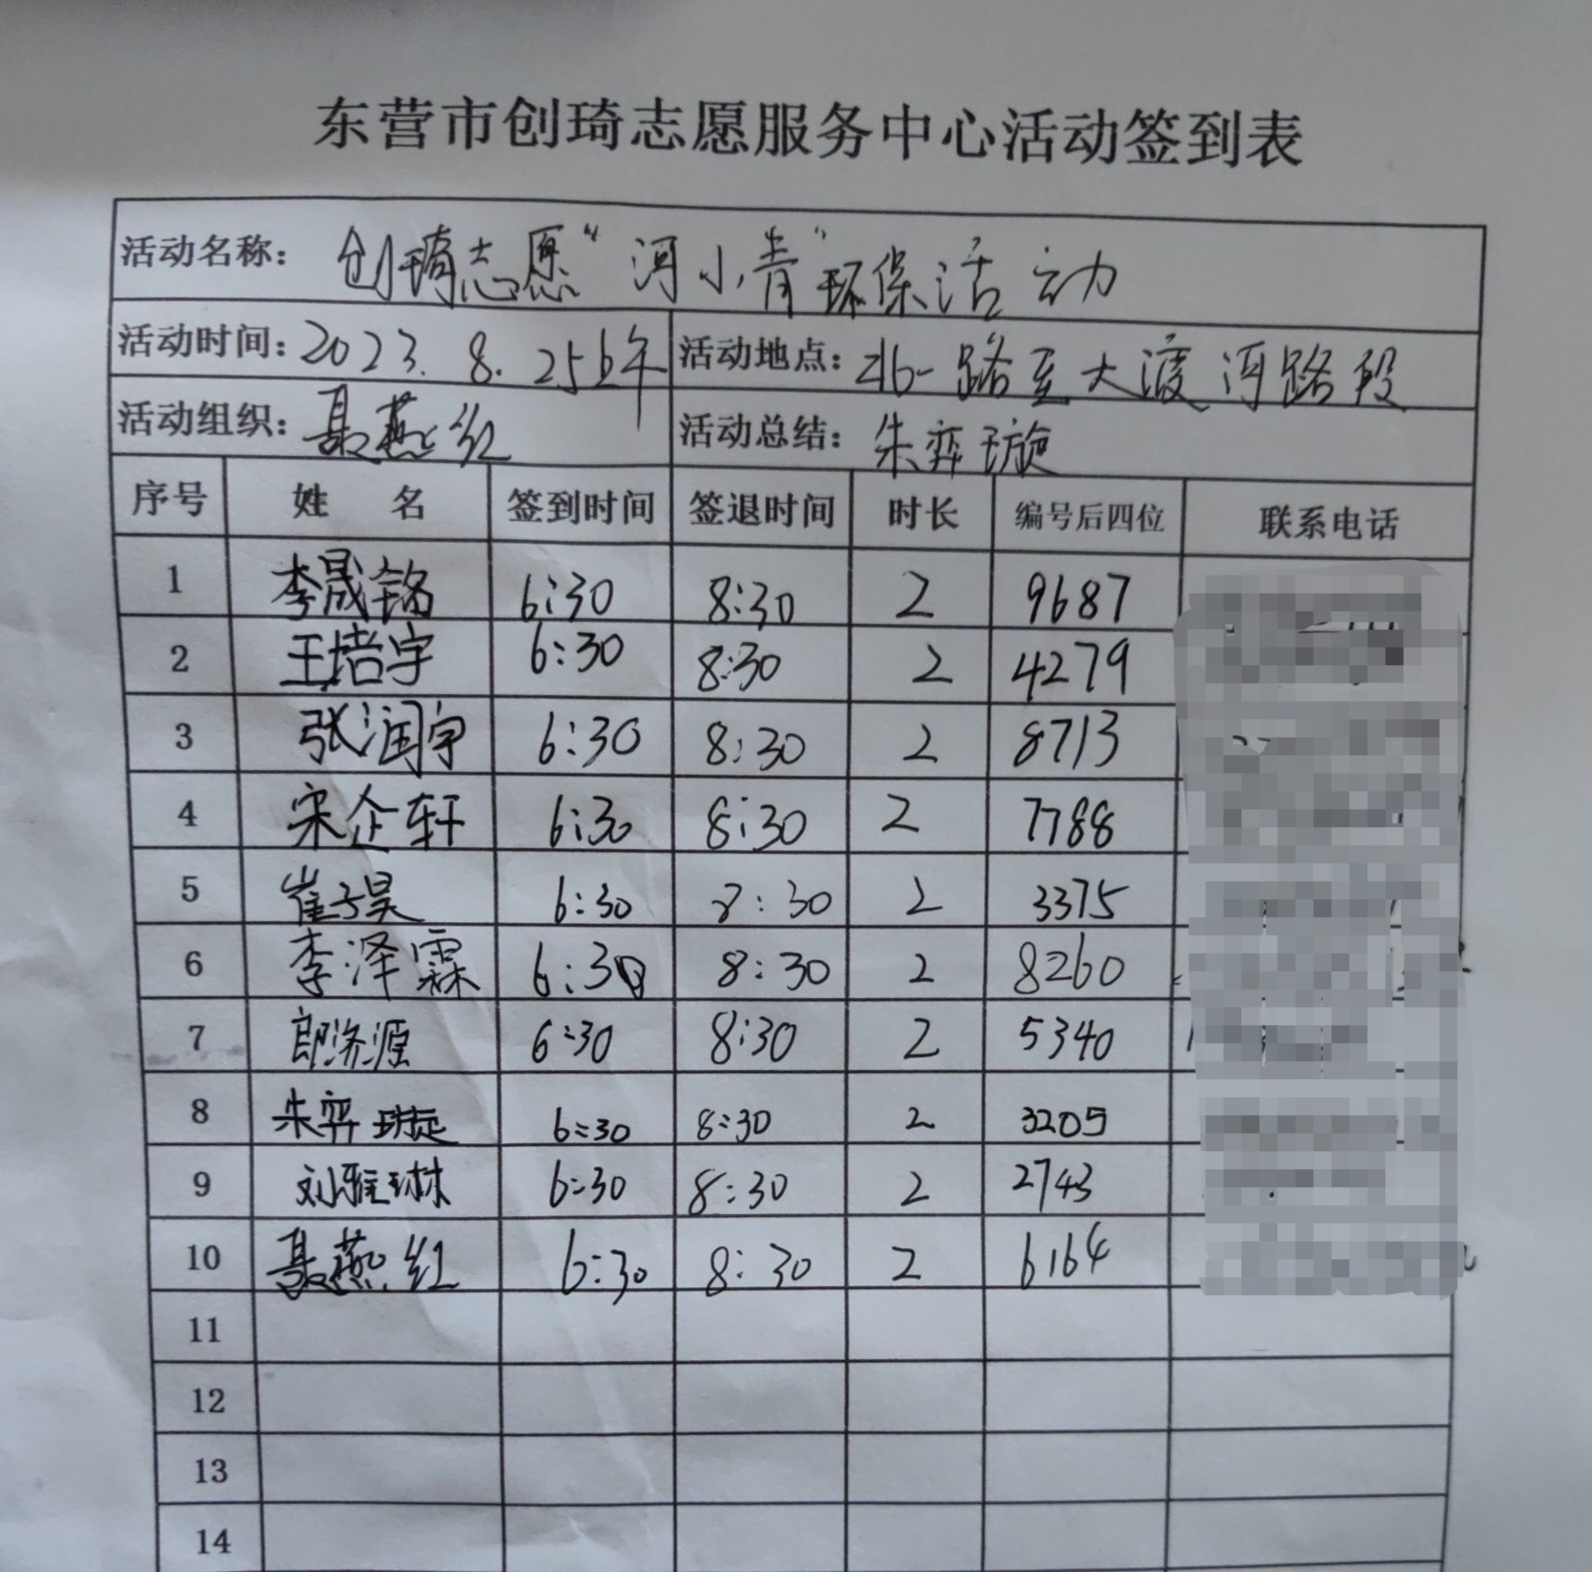 东营市创琦志愿服务中心活动签到表
活动名称： 创琦志愿“河小青”环保活动
活动时间：2023.8.25上午 活动地点：北一路至大渡河路段
活动组织：聂燕红 活动总结：朱弈璇
序号 姓 名 签到时间 签退时间 时长 编号后四位 联系电话
1 李晟铭 6:30 8:30 2 9687
2 王培宇 6:30 8:30 2 4279
3 张润宇 6:30 8:30 2 8713
4 宋企轩 6:30 8:30 2 7788
5 崔子昊 6:30 8:30 2 3375
6 李泽霖 6:30 8:30 2 8260
7 郎济源 6:30 8:30 2 5340
8 朱弈璇 6:30 8:30 2 3205
9 刘雅琳 6:30 8:30 2 2743
10 聂燕红 6:30 8:30 2 6164
11
12
13
14